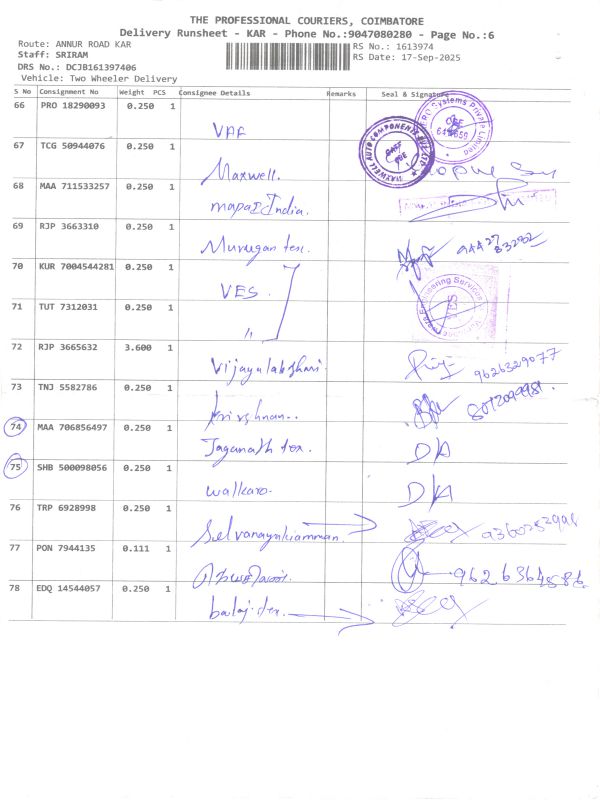 THE PROFESSIONAL COURIERS, COIMBATORE
Delivery Runsheet - KAR - Phone No.:9047080280 - Page No.:6
Route: ANNUR ROAD KAR
RS No.: 1613974
Staff: SRIRAM
RS Date: 17-Sep-2025
DRS No.: DCJB161397406
Vehicle: Two Wheeler Delivery
S No Consignment No Weight PCS Consignee Details Remarks Seal & Signature
66 PRO 18290093 0.250 1
67 TCG 50944076 0.250 1
Maxwell.
MAXWELL AUTO COMPONENTS PVT. LTD
68 MAA 711533257 0.250 1
mapal India.
69 RJP 3663310 0.250 1
Murugan tex.
70 KUR 7004544281 0.250 1
VES.
71 TUT 7312031 0.250 1
"
72 RJP 3665632 3.600 1
Vijayalakshmi. 9626329077
73 TNJ 5582786 0.250 1
krirshnan..
74 MAA 706856497 0.250 1
Jaganath tex. D/A
75 SHB 500098056 0.250 1
walkaro. D/A
76 TRP 6928998 0.250 1
Selvanayakiamman. 9360252998
77 PON 7944135 0.111 1
9626364586
78 EDQ 14544057 0.250 1
balaji tex.